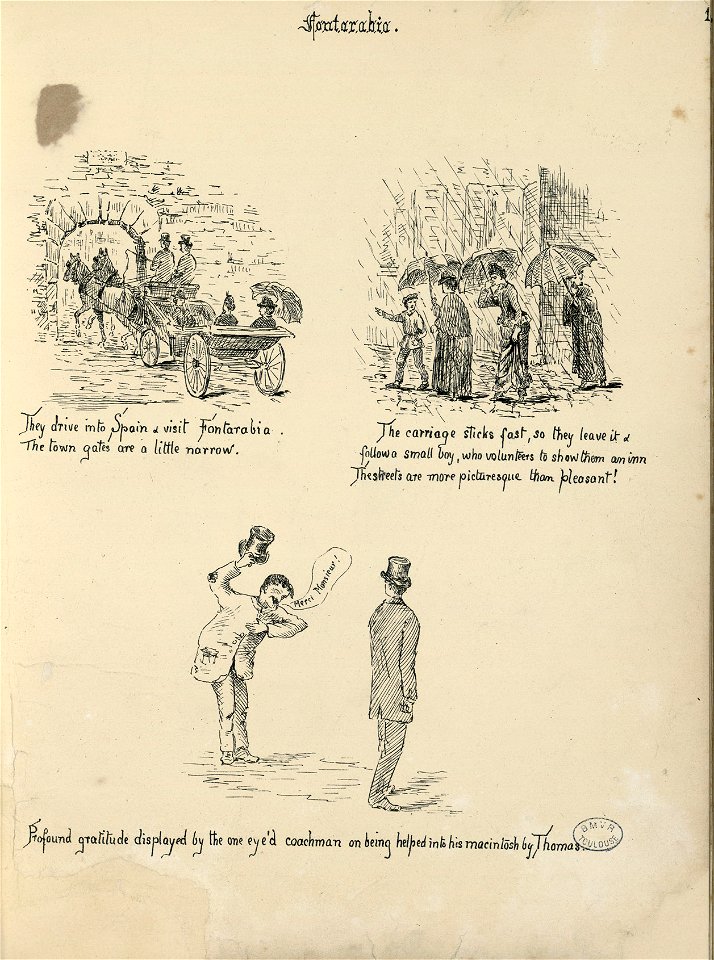 Fontarabia.
1
They drive into Spain & visit Fontarabia.
The town gates are a little narrow.
The carriage sticks fast, so they leave it &
follow a small boy, who volunteers to show them an inn
The streets are more picturesque than pleasant!
Merci Monsieur!
Profound gratitude displayed by the one eye'd coachman on being helped into his macintosh by Thomas.
BMVR
TOULOUSE